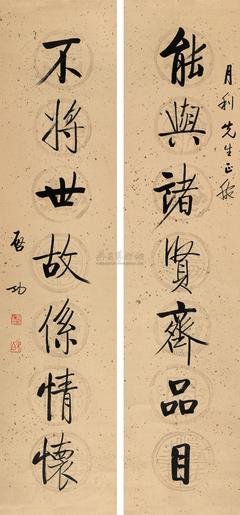 月利先生正腕
能與諸賢齊品目
不將世故係情懷
啟功